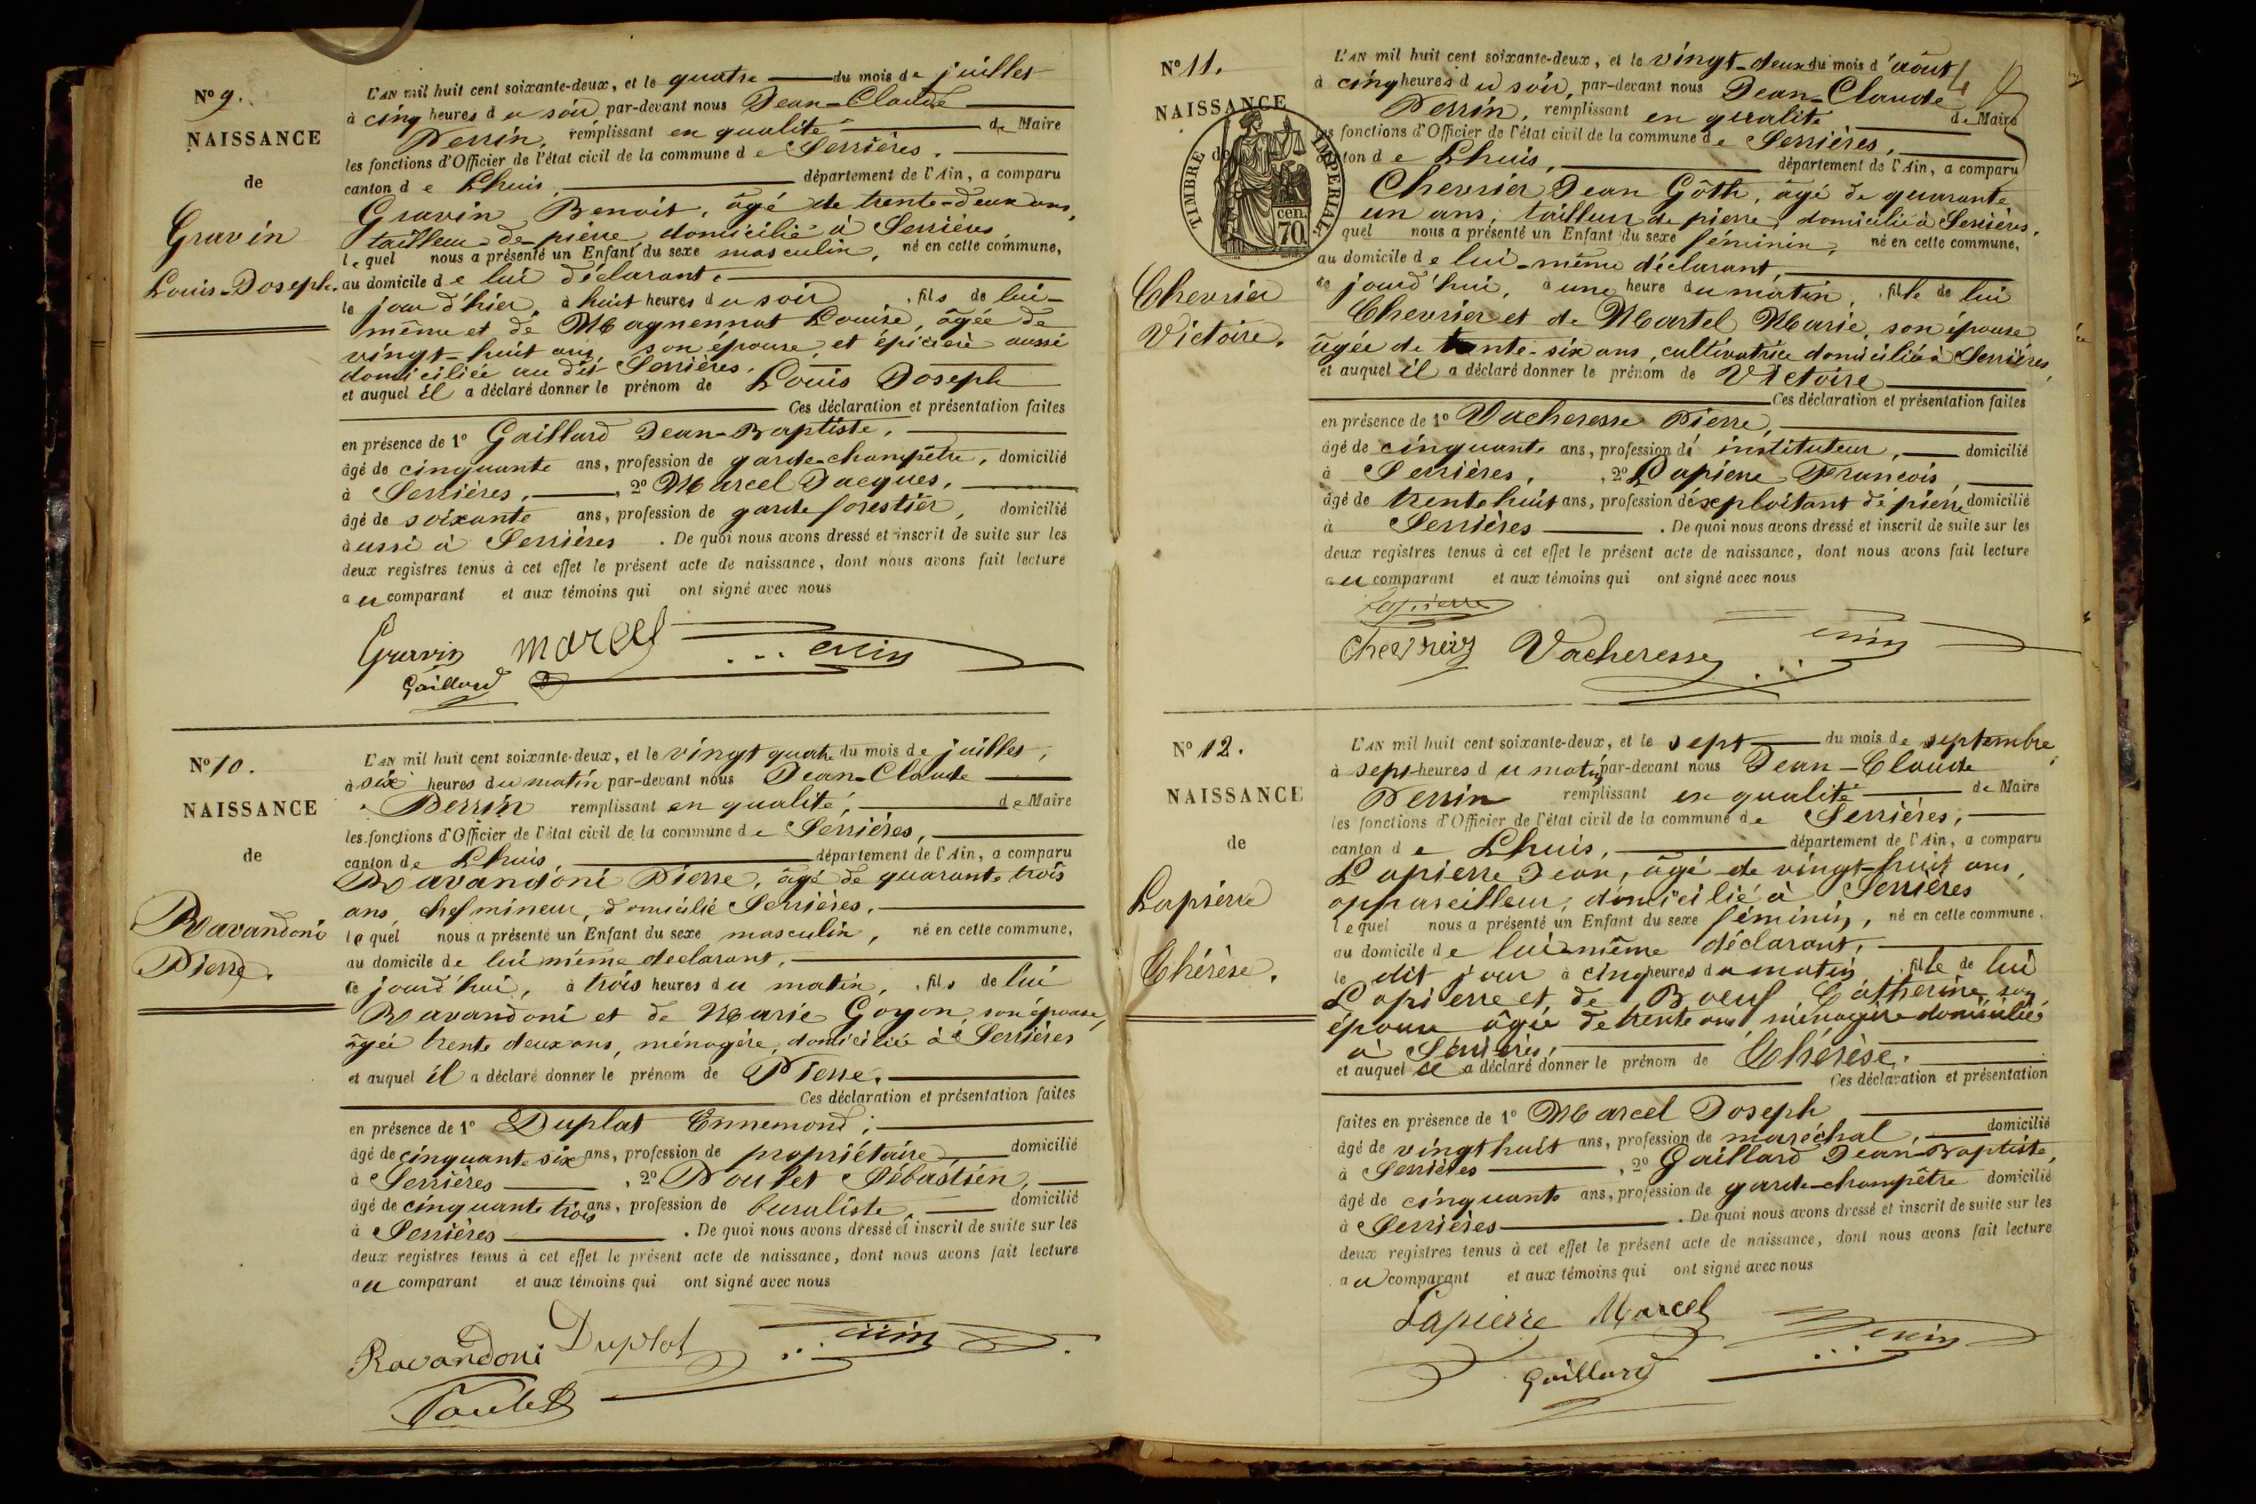 N° 9.
NAISSANCE
de
Gravin
Louis-Joseph.
L'AN mil huit cent soixante-deux, et le quatre du mois de juillet
à cinq heures du soir par-devant nous Jean-Claude
Perrin, remplissant en qualité de Maire
les fonctions d'Officier de l'état civil de la commune de Serrières.
canton de Lhuis, département de l'Ain, a comparu
Gravin Benoit, âgé de trente-deux ans,
tailleur de pierre domicilié à Serrières,
lequel nous a présenté un Enfant du sexe masculin, né en cette commune,
au domicile de lui déclarant.
le jour d'hier, à huit heures du soir, fils de lui-
même et de Magnennot Louise, âgée de
vingt-huit ans, son épouse, et épicière aussi
domiciliée au dit Serrières.
et auquel il a déclaré donner le prénom de Louis Joseph
Ces déclaration et présentation faites
en présence de 1° Gaillard Jean-Baptiste,
âgé de cinquante ans, profession de garde-champêtre, domicilié
à Serrières, 2° Marcel Jacques,
âgé de soixante ans, profession de garde forestier, domicilié
aussi à Serrières. De quoi nous avons dressé et inscrit de suite sur les
deux registres tenus à cet effet le présent acte de naissance, dont nous avons fait lecture
au comparant et aux témoins qui ont signé avec nous
Gravin marcel Perrin
Gaillard
N° 10.
NAISSANCE
de
Ravandoni
Pierre.
L'AN mil huit cent soixante-deux, et le vingt quatre du mois de juillet,
à six heures du matin par-devant nous Jean-Claude
Perrin remplissant en qualité, de Maire
les fonctions d'Officier de l'état civil de la commune de Serrières,
canton de Lhuis, département de l'Ain, a comparu
Ravandoni Pierre, âgé de quarante trois
ans, chef mineur, domicilié Serrières.
lequel nous a présenté un Enfant du sexe masculin, né en cette commune,
au domicile de lui même déclarant,
ce jourd'hui, à trois heures du matin, fils de lui
Ravandoni et de Marie Goyon, son épouse,
âgée trente deux ans, ménagère, domiciliée à Serrières
et auquel il a déclaré donner le prénom de Pierre.
Ces déclaration et présentation faites
en présence de 1° Duplat Ennemond,
âgé de cinquante six ans, profession de propriétaire domicilié
à Serrières, 2° Poulet Sébastien,
âgé de cinquante trois ans, profession de buraliste, domicilié
à Serrières. De quoi nous avons dressé et inscrit de suite sur les
deux registres tenus à cet effet le présent acte de naissance, dont nous avons fait lecture
au comparant et aux témoins qui ont signé avec nous
Ravandoni Duplat Perrin
Poulet
N° 11.
NAISSANCE
de
TIMBRE IMPERIAL
70 cen.
Chevrier
Victoire.
L'AN mil huit cent soixante-deux, et le vingt-deux du mois d'août
à cinq heures du soir, par-devant nous Jean-Claude
Perrin, remplissant en qualité de Maire
les fonctions d'Officier de l'état civil de la commune de Serrières,
canton de Lhuis, département de l'Ain, a comparu
Chevrier Jean Gôth, âgé de quarante
un ans, tailleur de pierre, domicilié à Serrières.
quel nous a présenté un Enfant du sexe féminin, né en cette commune,
au domicile de lui-même déclarant,
ce jourd'hui, à une heure du matin, fille de lui
Chevrier et de Martel Marie, son épouse
âgée de trente-six ans, cultivatrice domiciliée à Serrières,
et auquel il a déclaré donner le prénom de Victoire
Ces déclaration et présentation faites
en présence de 1° Vacheresse Pierre,
âgé de cinquante ans, profession d'instituteur, domicilié
à Serrières, 2° Lapierre François,
âgé de trente huit ans, profession d'exploitant de pierre domicilié
à Serrières. De quoi nous avons dressé et inscrit de suite sur les
deux registres tenus à cet effet le présent acte de naissance, dont nous avons fait lecture
au comparant et aux témoins qui ont signé avec nous
Lapierre
Chevrier Vacheresse Perrin
N° 12.
NAISSANCE
de
Lapierre
Thérèse.
L'AN mil huit cent soixante-deux, et le sept du mois de septembre,
à sept heures du matin par-devant nous Jean-Claude
Perrin remplissant en qualité de Maire
les fonctions d'Officier de l'état civil de la commune de Serrières,
canton de Lhuis, département de l'Ain, a comparu
Lapierre Jean, âgé de vingt-huit ans,
appareilleur, domicilié à Serrières
lequel nous a présenté un Enfant du sexe féminin, né en cette commune,
au domicile de lui-même déclarant,
le dit jour à cinq heures du matin, fille de lui
Lapierre et de Boeuf Catherine son
épouse âgée de trente ans, ménagère domiciliée
à Serrières,
et auquel il a déclaré donner le prénom de Thérèse.
Ces déclaration et présentation
faites en présence de 1° Marcel Joseph
âgé de vingt huit ans, profession de maréchal, domicilié
à Serrières, 2° Gaillard Jean-Baptiste,
âgé de cinquante ans, profession de garde-champêtre domicilié
à Serrières. De quoi nous avons dressé et inscrit de suite sur les
deux registres tenus à cet effet le présent acte de naissance, dont nous avons fait lecture
au comparant et aux témoins qui ont signé avec nous
Lapierre Marcel Perrin
Gaillard